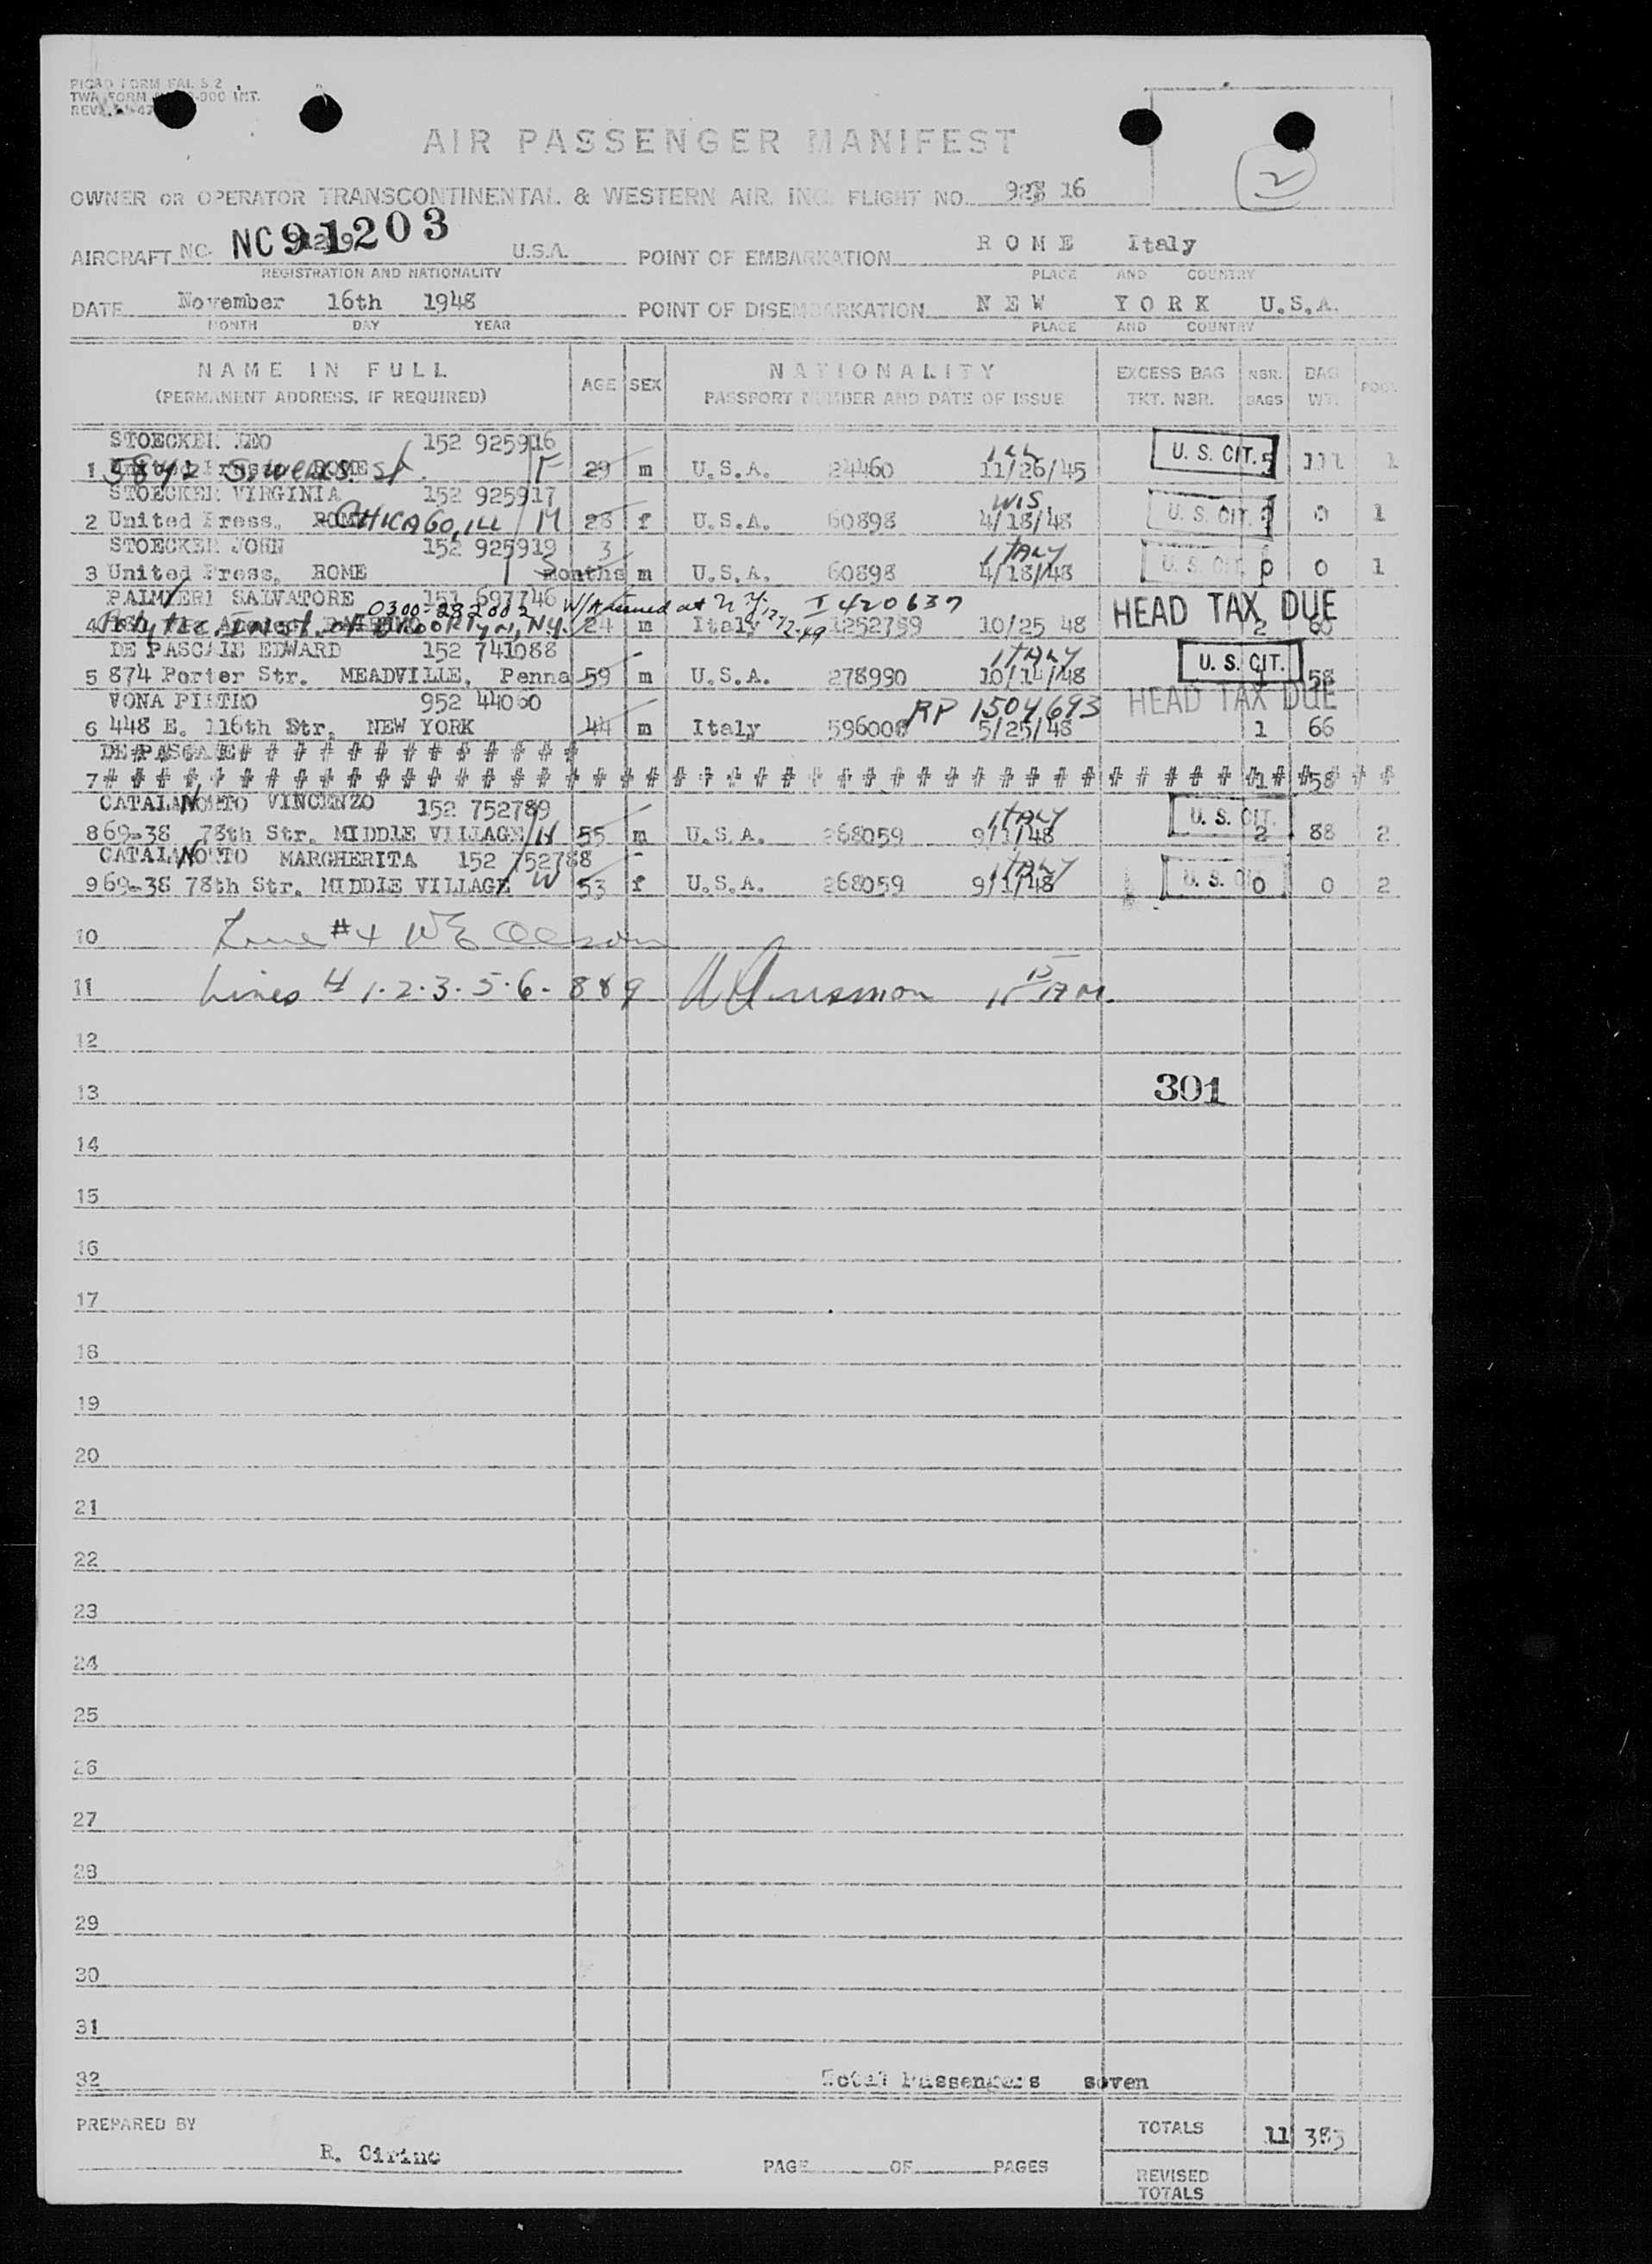 PICAO FORM FAL S.2
TWA FORM
REV.
AIR PASSENGER MANIFEST
2
OWNER OR OPERATOR TRANSCONTINENTAL & WESTERN AIR, INC. FLIGHT NO. 16
AIRCRAFT NO. NC 91203 U.S.A. POINT OF EMBARKATION ROME Italy
REGISTRATION AND NATIONALITY PLACE AND COUNTRY
DATE November 16th 1948 POINT OF DISEMBARKATION NEW YORK U.S.A.
MONTH DAY YEAR PLACE AND COUNTRY
NAME IN FULL (PERMANENT ADDRESS, IF REQUIRED) AGE SEX NATIONALITY PASSPORT NUMBER AND DATE OF ISSUE EXCESS BAG TKT. NBR. NBR. BAGS BAG WT. POOL
STOECKER LEO 152 925916 ILL U. S. CIT.
1 United Press, ROME 5842 S. Wells St. F 29 m U.S.A. 24460 11/26/45 5 111 1
STOECKER VIRGINIA 152 925917 WIS U. S. CIT.
2 United Press, ROME CHICAGO, ILL M 28 f U.S.A. 60898 4/18/48 0 1
STOECKER JOHN 152 925919 3 ITALY U. S. CIT.
3 United Press, ROME months m U.S.A. 60898 4/18/48 0 0 1
PALMIERI SALVATORE 151 697746 0300-282002 issued at N.Y. I 420637 HEAD TAX DUE
4 Polytec. Inst. of Brooklyn, N.Y. 24 m Italy 1252789 10/25 48 2 60
DE PASCALE EDWARD 152 741088 ITALY U. S. CIT.
5 874 Porter Str. MEADVILLE, Penna 59 m U.S.A. 278990 10/14/48 1 58
VONA PIETRO 952 44060 RP 1504693 HEAD TAX DUE
6 448 E. 116th Str. NEW YORK 44 m Italy 596008 5/25/48 1 66
DE PASCALE # # # # # # # # # # # # #
7 # # # # # # # # # # # # # # # # # # # # # # # # # # # # # # # # # # # # # # # # # # 1 # # 58 # # #
CATALANOTTO VINCENZO 152 752789 ITALY U. S. CIT.
8 69-38 78th Str. MIDDLE VILLAGE H 55 m U.S.A. 268059 9/1/48 2 88 2
CATALANOTTO MARGHERITA 152 752788 ITALY U. S. CIT.
9 69-38 78th Str. MIDDLE VILLAGE W 53 f U.S.A. 268059 9/1/48 0 0 2
10 Line #4 W E
11 Lines # 1.2.3.5.6. 8 & 9
12
13 301
14
15
16
17
18
19
20
21
22
23
24
25
26
27
28
29
30
31
32 Total Passengers seven
PREPARED BY R. Cirino TOTALS 11 383
PAGE OF PAGES REVISED TOTALS